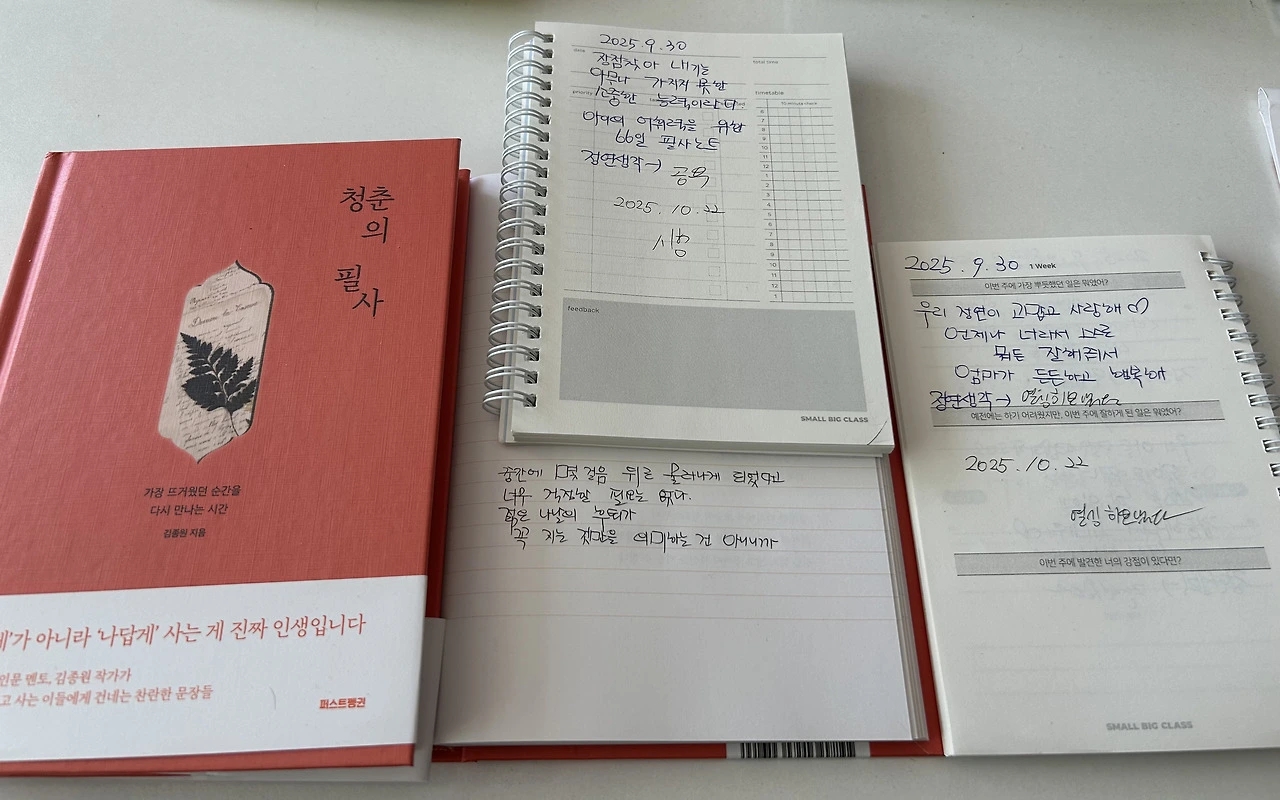 청춘
의
필
사
가장 뜨거웠던 순간을
다시 만나는 시간
김종원 지음
게'가 아니라 '나답게' 사는 게 진짜 인생입니다
인문 멘토, 김종원 작가가
고 사는 이들에게 건네는 찬란한 문장들
퍼스트펭귄
2025.9.30
date
total time
장점찾아 내기는
아무나 가지지 못한
priority
timetable
10 minute check
소중한 능력이란다.
아이의 어휘력을 위한
66일 필사노트
정연생각→
2025.10.22
6
7
8
9
10
11
12
1
2
3
4
5
6
7
8
9
10
11
12
1
feedback
SMALL BIG CLASS
중간에 몇 걸음 뒤로 물러나게 되었다고
너무 걱정할 필요는 없다.
젊은 나날의 후퇴가
꼭 지는 것만을 의미하는 건 아니니까
2025.9.30 1 Week
이번 주에 가장 뿌듯했던 일은 뭐였어?
우리 정연이 고맙고 사랑해
언제나 너라서 스스로
뭐든 잘해줘서
엄마가 든든하고 행복해
정연생각→ 열심히 보냈다
예전에는 하기 어려웠지만, 이번 주에 잘하게 된 일은 뭐였어?
2025.10.22
열심히 보냈다
이번 주에 발견한 너의 강점이 있다면?
SMALL BIG CLASS